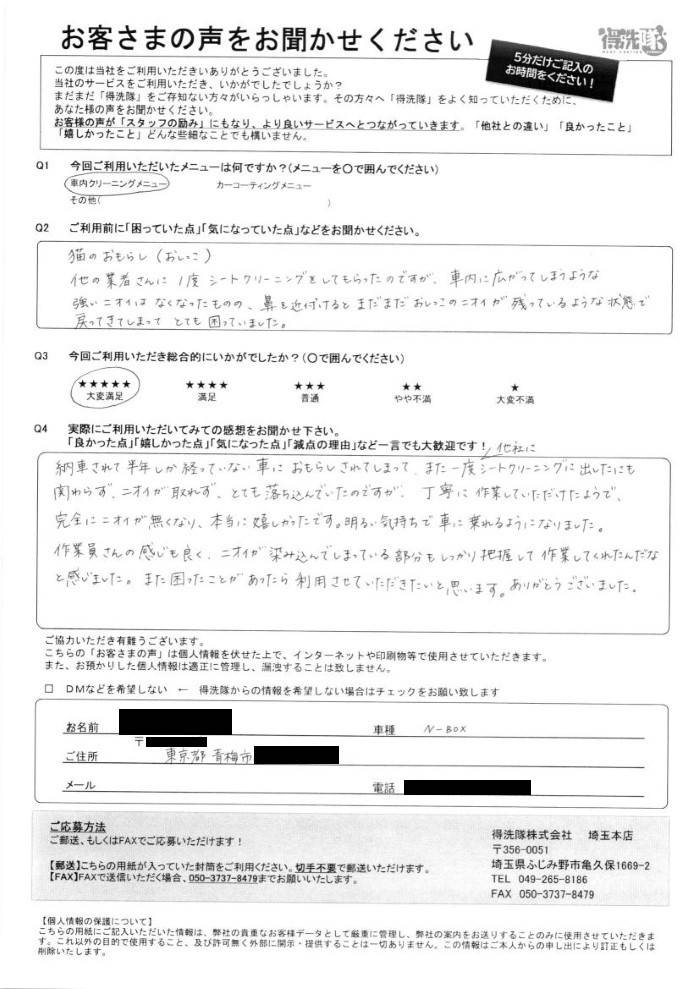 お客さまの声をお聞かせください
得洗隊
5分だけご記入の
お時間をください！
この度は当社をご利用いただきいありがとうございました。
当社のサービスをご利用いただき、いかがでしたでしょうか？
まだまだ「得洗隊」をご存知ない方々がいらっしゃいます。その方々へ「得洗隊」をよく知っていただくために、
あなた様の声をお聞かせください。
お客様の声が「スタッフの励み」にもなり、より良いサービスへとつながっていきます。「他社との違い」「良かったこと」
「嬉しかったこと」どんな些細なことでも構いません。
Q1 今回ご利用いただいたメニューは何ですか？(メニューを〇で囲んでください)
車内クリーニングメニュー カーコーティングメニュー
その他( )
Q2 ご利用前に「困っていた点」「気になっていた点」などをお聞かせください。
猫のおもらし(おしっこ)
他の業者さんに1度シートクリーニングをしてもらったのですが、車内に広がってしまうような
強いニオイはなくなったものの、鼻を近付けるとまだまだおしっこのニオイが残っているような状態で
戻ってきてしまってとても困っていました。
Q3 今回ご利用いただき総合的にいかがでしたか？(〇で囲んでください)
★★★★★ ★★★★ ★★★ ★★ ★
大変満足 満足 普通 やや不満 大変不満
Q4 実際にご利用いただいてみての感想をお聞かせ下さい。
「良かった点」「嬉しかった点」「気になった点」「減点の理由」など一言でも大歓迎です！
他社に
納車されて半年しか経っていない車におもらしされてしまって、また一度シートクリーニングに出したにも
関わらず、ニオイが取れず、とても落ち込んでいたのですが、丁寧に作業していただけたようで、
完全にニオイが無くなり、本当に嬉しかったです。明るい気持ちで車に乗れるようになりました。
作業員さんの感じも良く、ニオイが染み込んでしまっている部分もしっかり把握して作業してくれたんだな
と感じました。また困ったことがあったら利用させていただきたいと思います。ありがとうございました。
ご協力いただき有難うございます。
こちらの「お客さまの声」は個人情報を伏せた上で、インターネットや印刷物等で使用させていただきます。
また、お預かりした個人情報は適正に管理し、漏洩することは致しません。
□ DMなどを希望しない ← 得洗隊からの情報を希望しない場合はチェックをお願い致します
お名前 車種 N-BOX
〒
ご住所 東京都青梅市
メール 電話
ご応募方法
ご郵送、もしくはFAXでご応募いただけます！
【郵送】こちらの用紙が入っていた封筒をご利用ください。切手不要で郵送いただけます。
【FAX】FAXで送信いただく場合、050-3737-8479までお願いいたします。
得洗隊株式会社 埼玉本店
〒356-0051
埼玉県ふじみ野市亀久保1669-2
TEL 049-265-8186
FAX 050-3737-8479
【個人情報の保護について】
こちらの用紙にご記入いただいた情報は、弊社の貴重なお客様データとして厳重に管理し、弊社の案内をお送りすることのみに使用させていただきま
す。これ以外の目的で使用すること、及び許可無く外部に開示・提供することは一切ありません。この情報はご本人からの申し出により訂正もしくは
削除いたします。